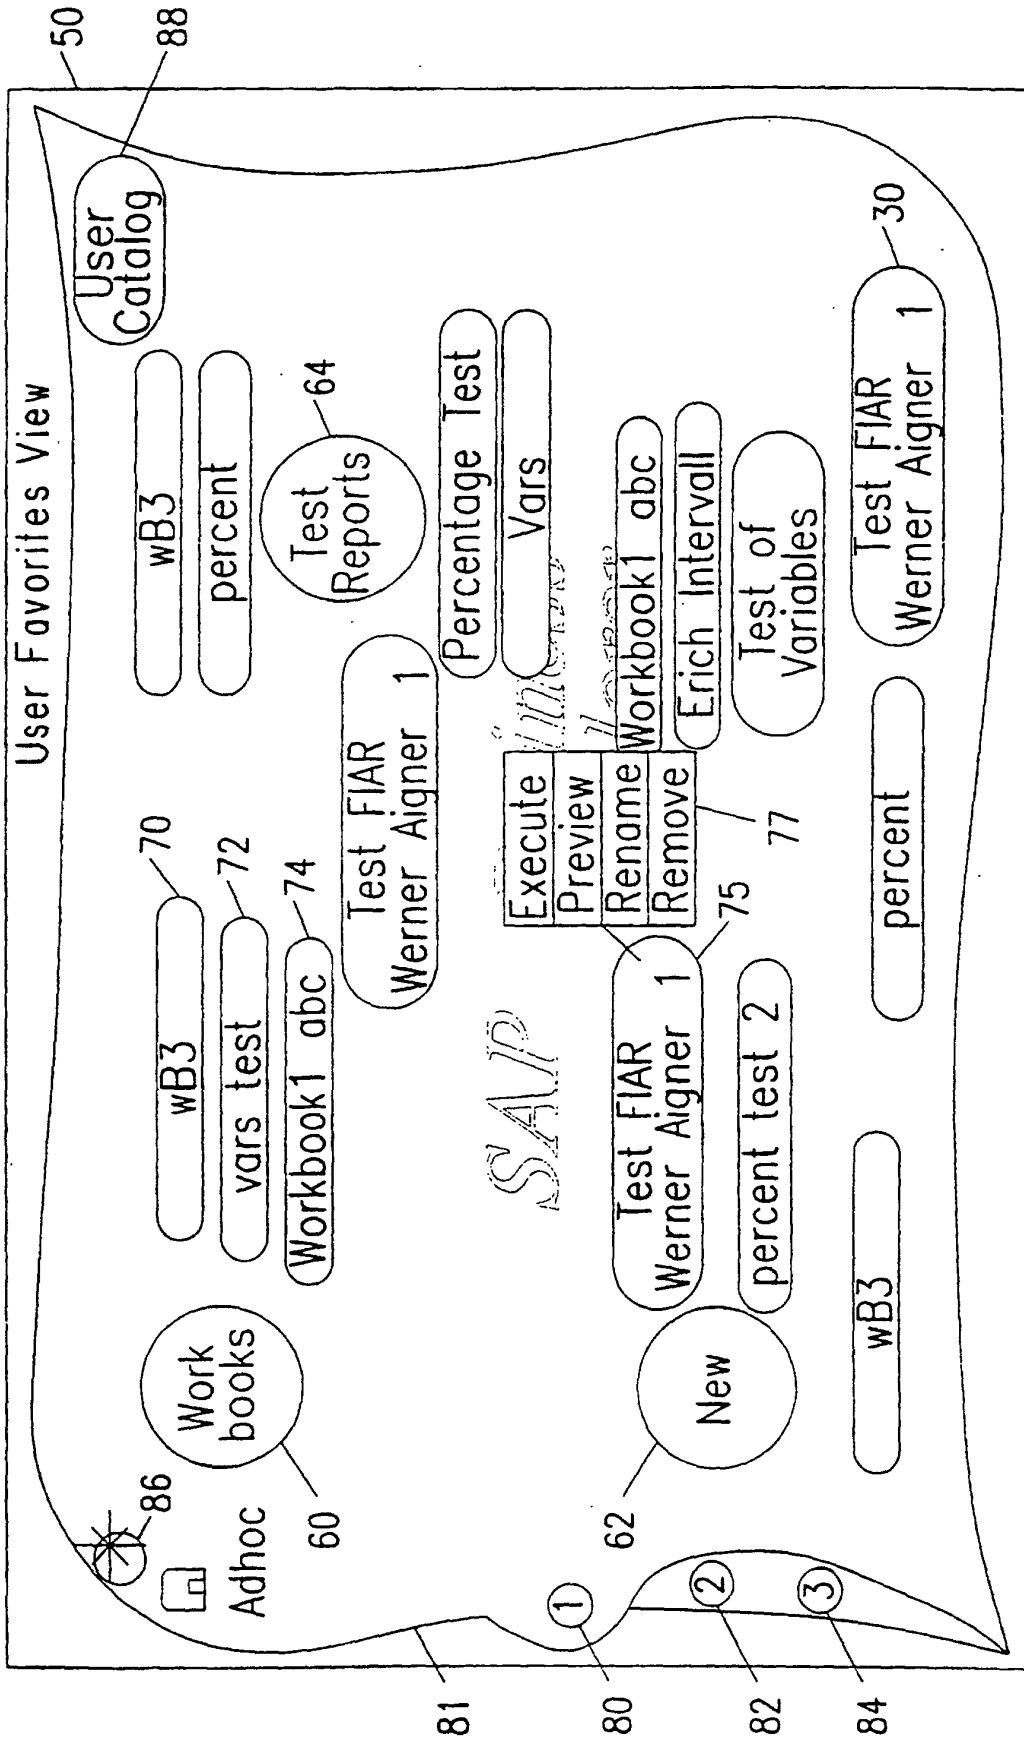 User Favorites View
50
88
User
Catalog
86
Adhoc
Work
books
60
wB3
70
vars test
72
Workbook1 abc
74
wB3
percent
Test
Reports
64
Test FIAR
Werner Aigner 1
Percentage Test
Vars
SAP
Execute
Preview
Rename
Remove
77
Workbook1 abc
Erich Intervall
Test of
Variables
Test FIAR
Werner Aigner 1
75
percent test 2
New
62
wB3
percent
Test FIAR
Werner Aigner 1
30
1
2
3
81
80
82
84